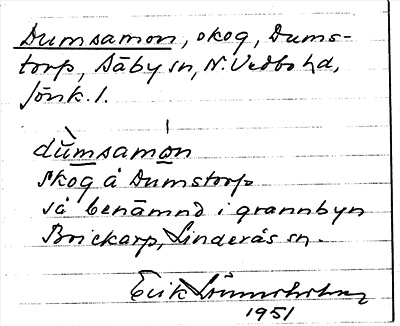 Dumsamon, skog, Dums-
torp, Säby sn, N. Vedbo hd,
Jönk. l.
dùmsamon
skog å Dumstorp
så benämnd i grannbyn
Brickarp, Linderås sn.
Erik
1951